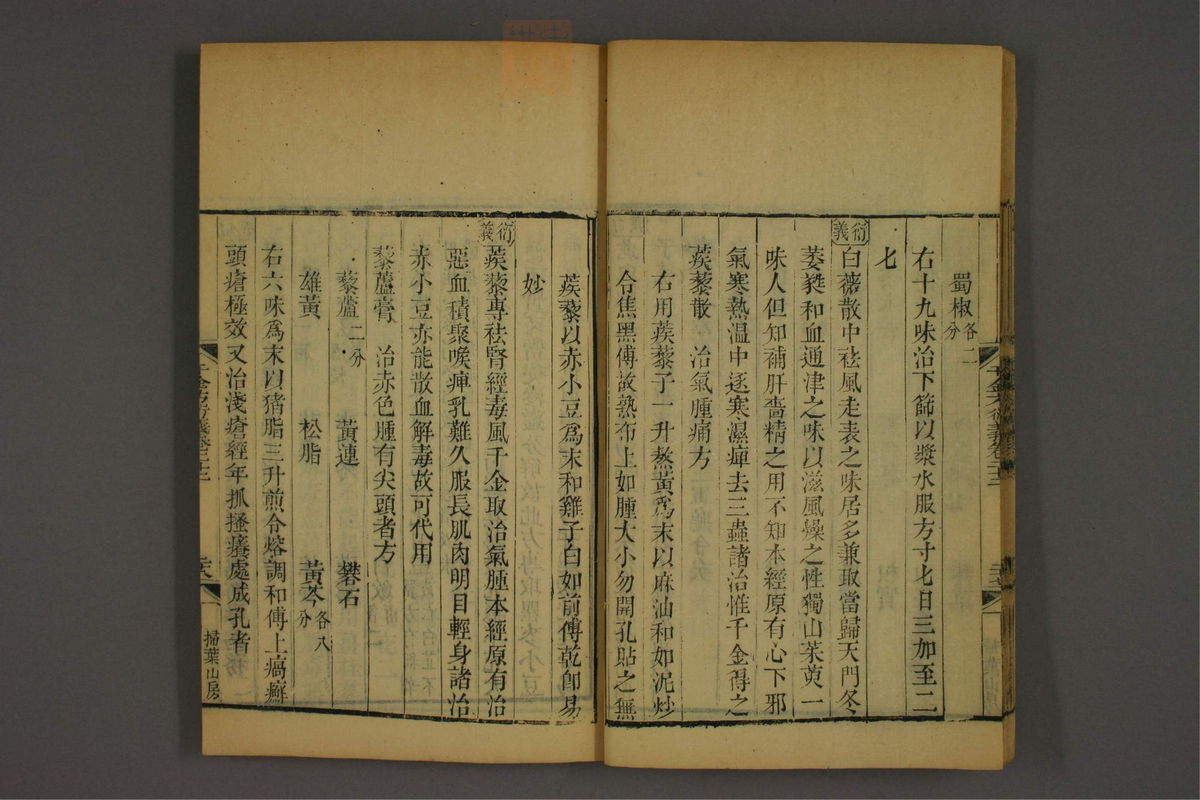 蜀椒各二分
右十九味治下篩以漿水服方寸匕日三加至二
匕
衍義
白薇散中祛風走表之味居多兼取當歸天門冬
萎蕤和血通津之味以滋風燥之性獨山茱萸一
味人但知補肝嗇精之用不知本經原有心下邪
氣寒熱溫中逐寒濕痺去三蟲諸治惟千金得之
蒺藜散　治氣腫痛方
右用蒺藜子一升熬黃為末以麻油和如泥炒
令焦黑傅故熟布上如腫大小勿開孔貼之無
蒺藜以赤小豆為末和雞子白如前傅乾即易
妙
衍義
蒺藜專祛腎經毒風千金取治氣腫本經原有治
惡血積聚喉痺乳難久服長肌肉明目輕身諸治
赤小豆亦能散血解毒故可代用
藜蘆膏　治赤色腫有尖頭者方
藜蘆二分　黃連　礬石
雄黃　松脂　黃芩各八分
右六味為末以猪脂三升煎令熔調和傅上瘑癬
頭瘡極效又治淺瘡經年抓搔癢處成孔者
掃葉山房